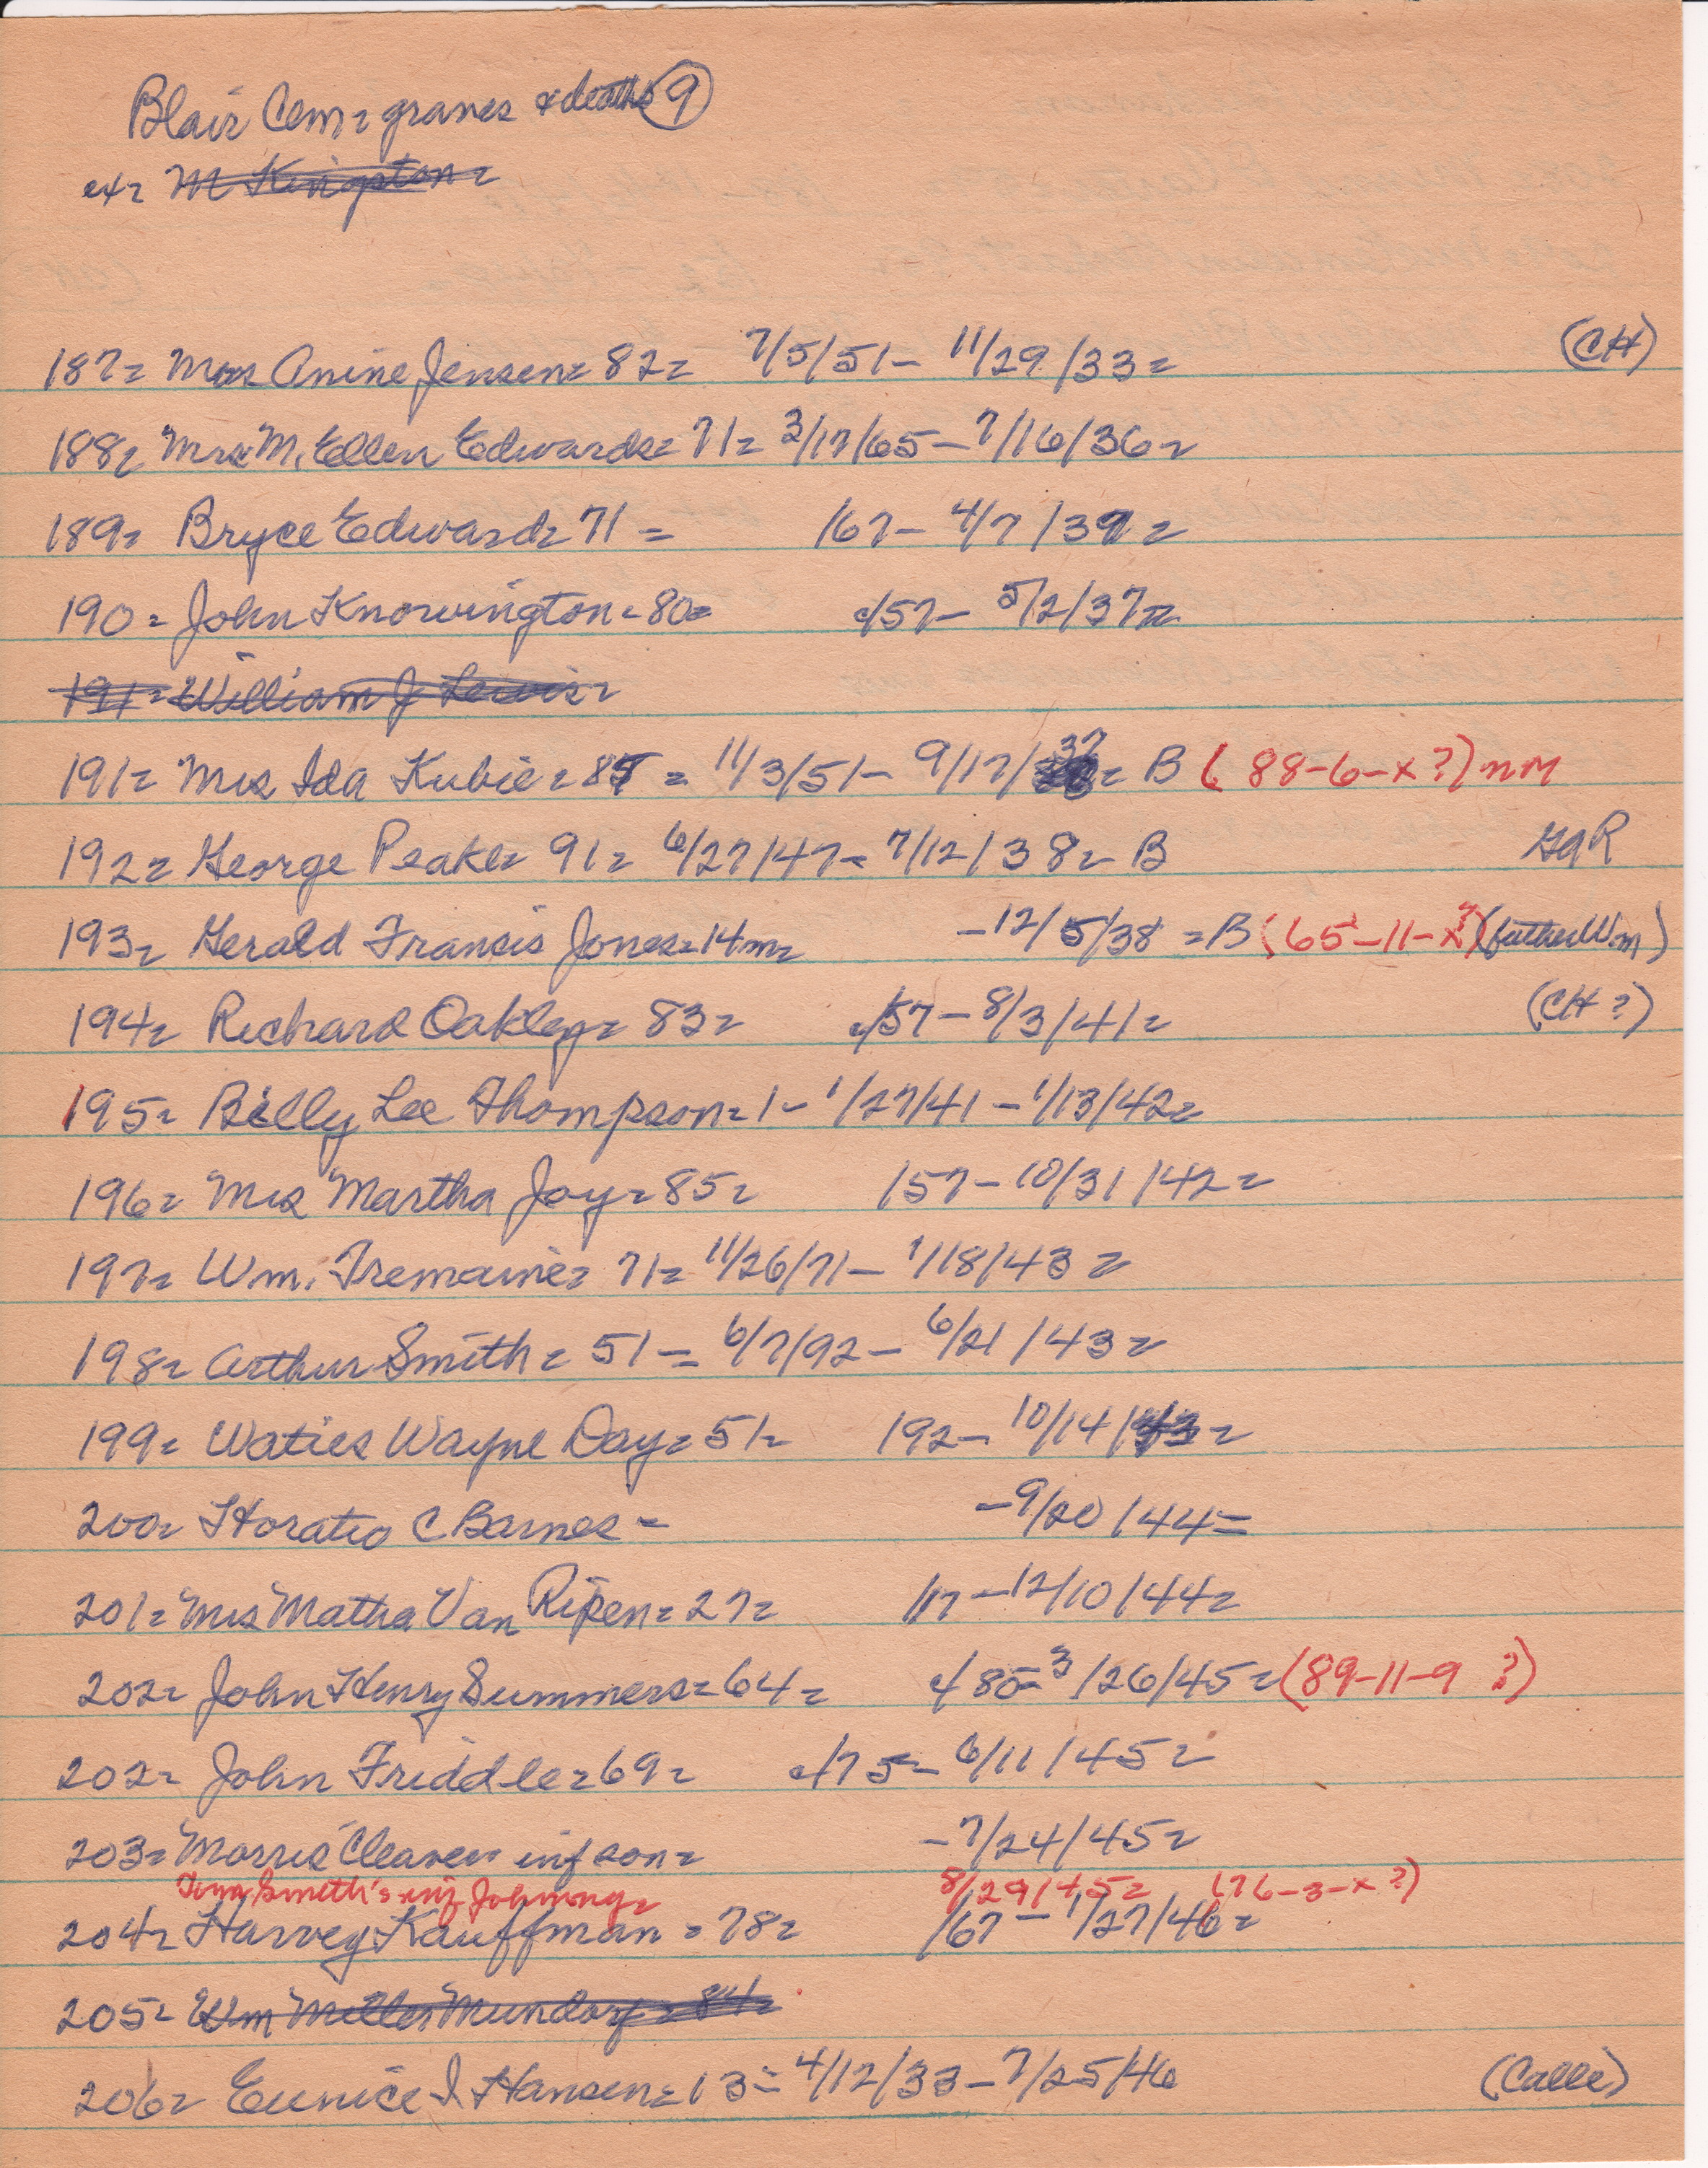 Blair Cem= graves & deaths 9
ex= M Kingston=
187= Mrs Anine Jensen= 82= 7/5/51- 11/29/33= (CH)
188= Mrs M. Ellen Edwards= 71= 3/17/65- 7/16/36=
189= Bryce Edwards= 71= /67- 4/7/39=
190= John Knowington= 80= c/57- 5/2/37=
191= William J Lewis=
191= Mrs Ida Kubie= 85= 11/3/51- 9/17/37= B (88-6-x?) nM
192= George Peake= 91= 6/27/47- 7/12/38= B GaR
193= Gerald Francis Jones= 14m= -12/5/38 =B (65-11-x?) (father Wm)
194= Richard Oakley= 83= c/57- 8/3/41= (CH?)
195= Billy Lee Thompson= 1- 1/27/41 - 1/13/42=
196= Mrs Martha Joy= 85= /57- 10/31/42=
197= Wm. Tremaine= 71= 11/26/71- 1/18/43=
198= Arthur Smith= 51= 6/7/92- 6/21/43=
199= Waties Wayne Day= 51= /92- 10/14/43=
200= Horatio C Barnes- -9/20/44=
201= Mrs Matha Van Ripen= 27= /17-12/10/44=
202= John Henry Summers= 64= c/80- 3/26/45= (89-11-9 ?)
202= John Friddle= 69= c/75- 6/11/45=
203= Morris Cleaver inf son= -7/24/45=
Smith's inf Johnny= 8/29/45= (76-3-x?)
204= Harvey Kauffman= 78= /67- 1/27/46=
205= Wm Miller Mundorf= 84=
206= Eunice I Hansen= 13= 4/12/33- 7/25/46 (Calle)